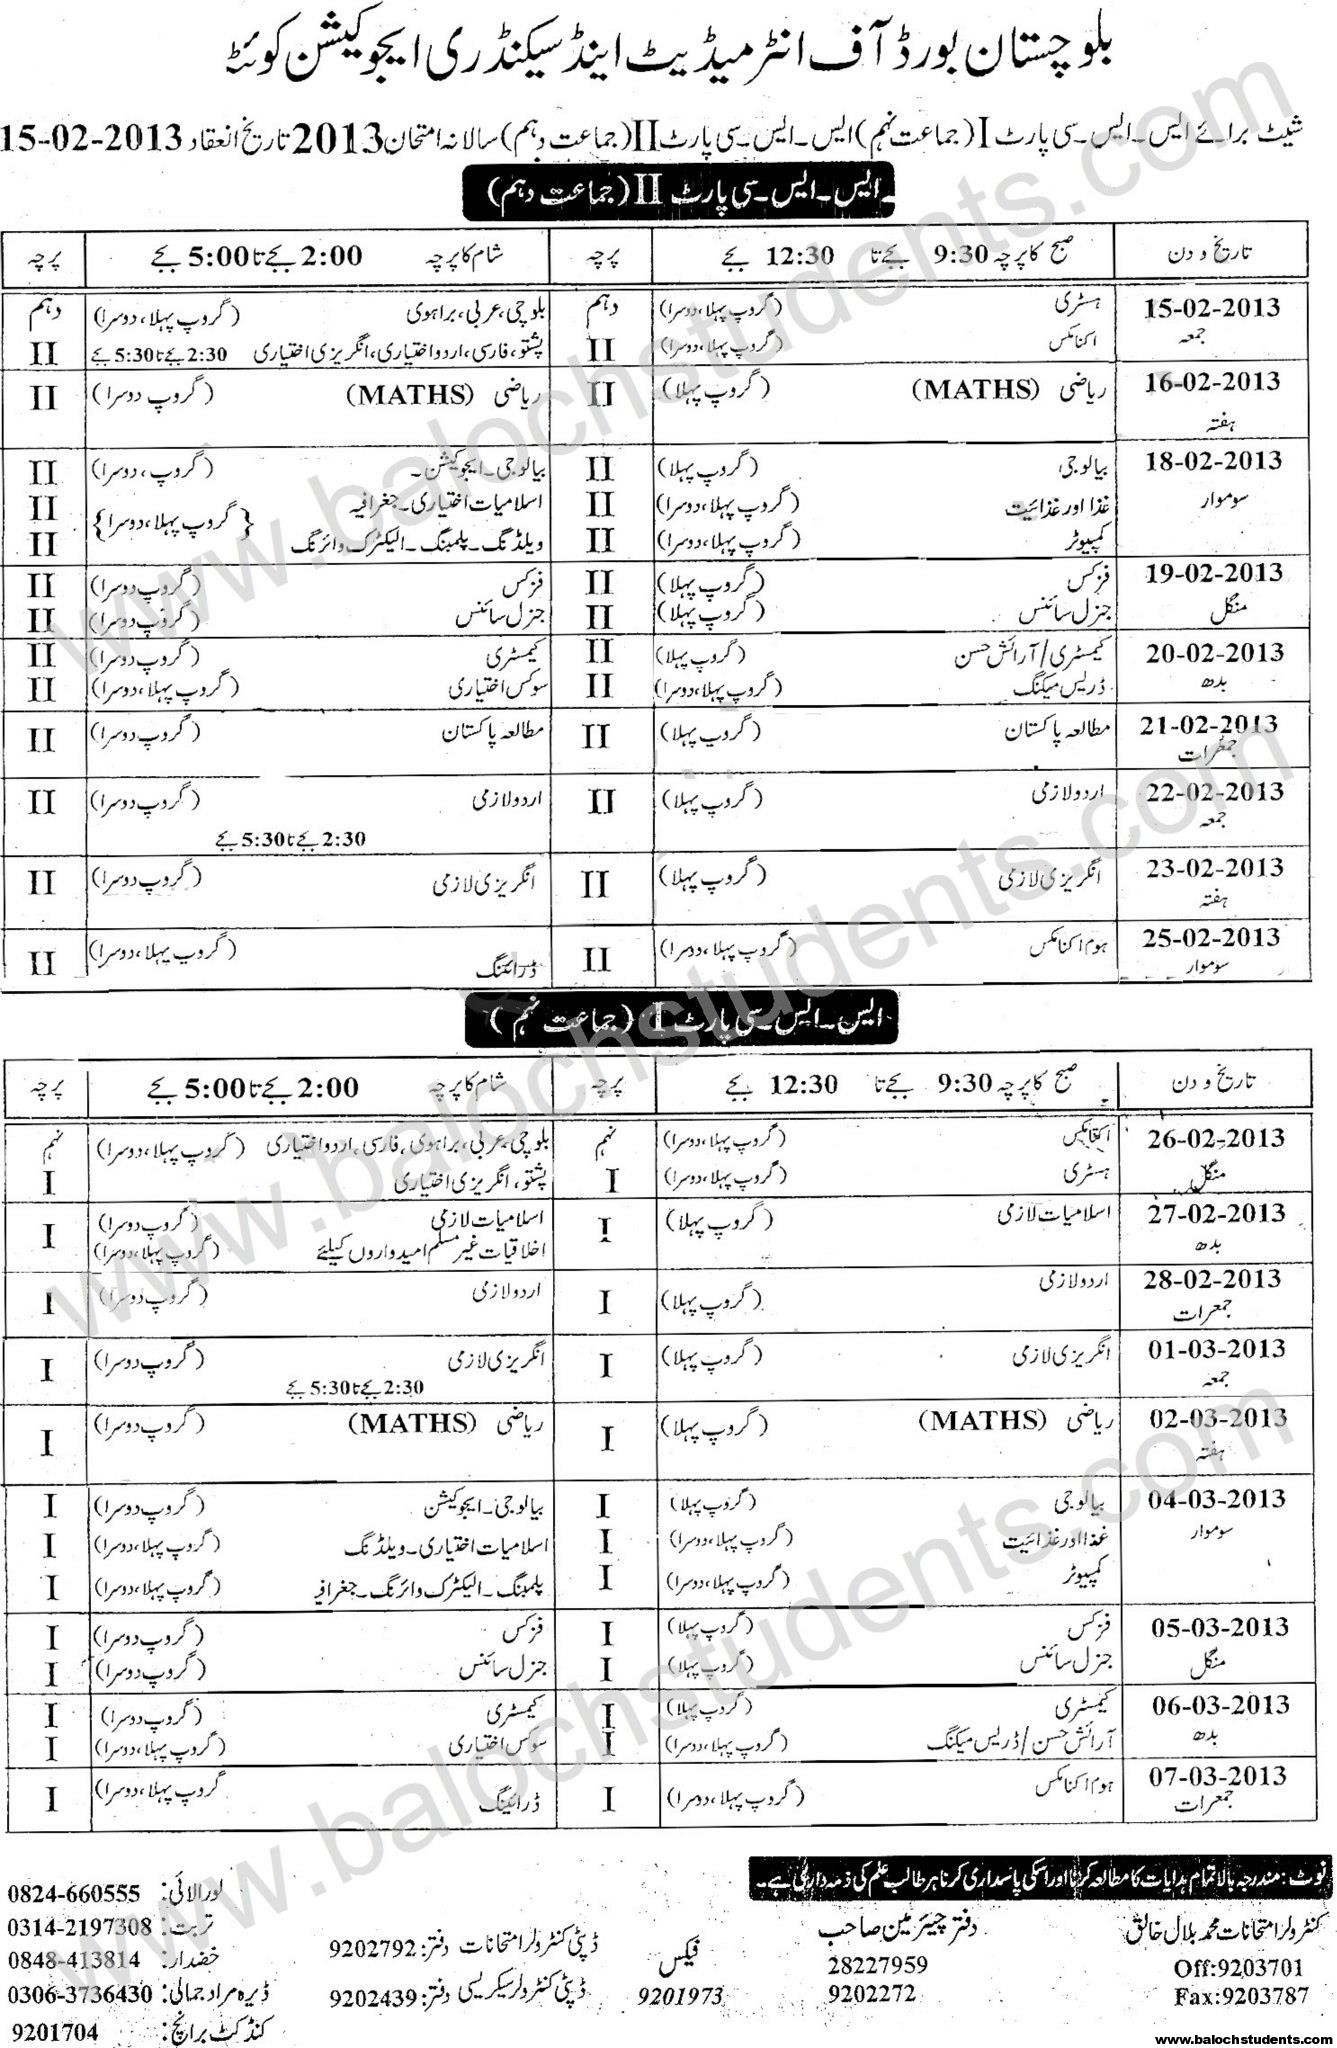 بلوچستان بورڈ آف انٹرمیڈیٹ اینڈ سیکنڈری ایجوکیشن کوئٹہ
شیٹ برائے ایس۔ایس۔سی پارٹ I (جماعت نہم) ایس۔ایس۔سی پارٹ II (جماعت دہم) سالانہ امتحان 2013 تاریخ انعقاد 15-02-2013
ایس۔ایس۔سی پارٹ II (جماعت دہم)
تاریخ و دن صبح کا پرچہ 9:30 بجے تا 12:30 بجے پرچہ شام کا پرچہ 2:00 بجے تا 5:00 بجے پرچہ
15-02-2013 ہسٹری (گروپ پہلا، دوسرا) دہم بلوچی، عربی، براہوی (گروپ پہلا، دوسرا) دہم
جمعہ اکنامکس (گروپ پہلا، دوسرا) II پشتو، فارسی، اردو اختیاری، انگریزی اختیاری 2:30 بجے تا 5:30 بجے II
16-02-2013 ریاضی (MATHS) (گروپ پہلا) II ریاضی (MATHS) (گروپ دوسرا) II
ہفتہ
18-02-2013 بیالوجی (گروپ پہلا) II بیالوجی۔ایجوکیشن۔ (گروپ، دوسرا) II
سوموار غذا اور غذائیت (گروپ پہلا، دوسرا) II اسلامیات اختیاری۔جغرافیہ {گروپ پہلا، دوسرا} II
کمپیوٹر (گروپ پہلا، دوسرا) II ویلڈنگ۔پلمبنگ۔الیکٹرک وائرنگ II
19-02-2013 فزکس (گروپ پہلا) II فزکس (گروپ دوسرا) II
منگل جنرل سائنس (گروپ پہلا) II جنرل سائنس (گروپ دوسرا) II
20-02-2013 کیمسٹری/آرائش حسن (گروپ پہلا) II کیمسٹری (گروپ دوسرا) II
بدھ ڈریس میکنگ (گروپ پہلا، دوسرا) II سوکس اختیاری (گروپ پہلا، دوسرا) II
21-02-2013 مطالعہ پاکستان (گروپ پہلا) II مطالعہ پاکستان (گروپ دوسرا) II
جمعرات
22-02-2013 اردو لازمی (گروپ پہلا) II اردو لازمی (گروپ دوسرا) II
جمعہ 2:30 بجے تا 5:30 بجے
23-02-2013 انگریزی لازمی (گروپ پہلا) II انگریزی لازمی (گروپ دوسرا) II
ہفتہ
25-02-2013 ہوم اکنامکس (گروپ پہلا، دوسرا) II ڈرائنگ (گروپ پہلا، دوسرا) II
سوموار
ایس۔ایس۔سی پارٹ I (جماعت نہم)
تاریخ و دن صبح کا پرچہ 9:30 بجے تا 12:30 بجے پرچہ شام کا پرچہ 2:00 بجے تا 5:00 بجے پرچہ
26-02-2013 اکنامکس (گروپ پہلا، دوسرا) نہم بلوچی، عربی، براہوی، فارسی، اردو اختیاری (گروپ پہلا، دوسرا) نہم
منگل ہسٹری (گروپ پہلا، دوسرا) I پشتو، انگریزی اختیاری I
27-02-2013 اسلامیات لازمی (گروپ پہلا) I اسلامیات لازمی (گروپ دوسرا) I
بدھ اخلاقیات غیر مسلم امیدواروں کیلئے (گروپ پہلا، دوسرا)
28-02-2013 اردو لازمی (گروپ پہلا) I اردو لازمی (گروپ دوسرا) I
جمعرات
01-03-2013 انگریزی لازمی (گروپ پہلا) I انگریزی لازمی (گروپ دوسرا) I
جمعہ 2:30 بجے تا 5:30 بجے
02-03-2013 ریاضی (MATHS) (گروپ پہلا) I ریاضی (MATHS) (گروپ دوسرا) I
ہفتہ
04-03-2013 بیالوجی (گروپ پہلا) I بیالوجی۔ایجوکیشن (گروپ دوسرا) I
سوموار غذا اور غذائیت (گروپ پہلا، دوسرا) I اسلامیات اختیاری۔ویلڈنگ (گروپ پہلا، دوسرا) I
کمپیوٹر (گروپ پہلا، دوسرا) I پلمبنگ۔الیکٹرک وائرنگ۔جغرافیہ (گروپ پہلا، دوسرا) I
05-03-2013 فزکس (گروپ پہلا) I فزکس (گروپ دوسرا) I
منگل جنرل سائنس (گروپ پہلا) I جنرل سائنس (گروپ دوسرا) I
06-03-2013 کیمسٹری (گروپ پہلا) I کیمسٹری (گروپ دوسرا) I
بدھ آرائش حسن/ڈریس میکنگ (گروپ پہلا، دوسرا) I سوکس اختیاری (گروپ پہلا، دوسرا) I
07-03-2013 ہوم اکنامکس (گروپ پہلا، دوسرا) I ڈرائینگ گروپ پہلا، دوسرا) I
جمعرات
نوٹ: مندرجہ بالا تمام ہدایات کا مطالعہ کرنا اور اسکی پاسداری کرنا ہر طالب علم کی ذمہ داری ہے۔
کنٹرولر امتحانات محمد بلال خالق
Off:9203701
Fax:9203787
دفتر چیئرمین صاحب
28227959
9202272
فیکس
9201973
ڈپٹی کنٹرولر امتحانات دفتر: 9202792
ڈپٹی کنٹرولر سیکریسی دفتر: 9202439
لورالائی: 0824-660555
تربت: 0314-2197308
خضدار: 0848-413814
ڈیرہ مراد جمالی: 0306-3736430
کنڈکٹ برانچ: 9201704
www.balochstudents.com
www.balochstudents.com
www.balochstudents.com
www.balochstudents.com